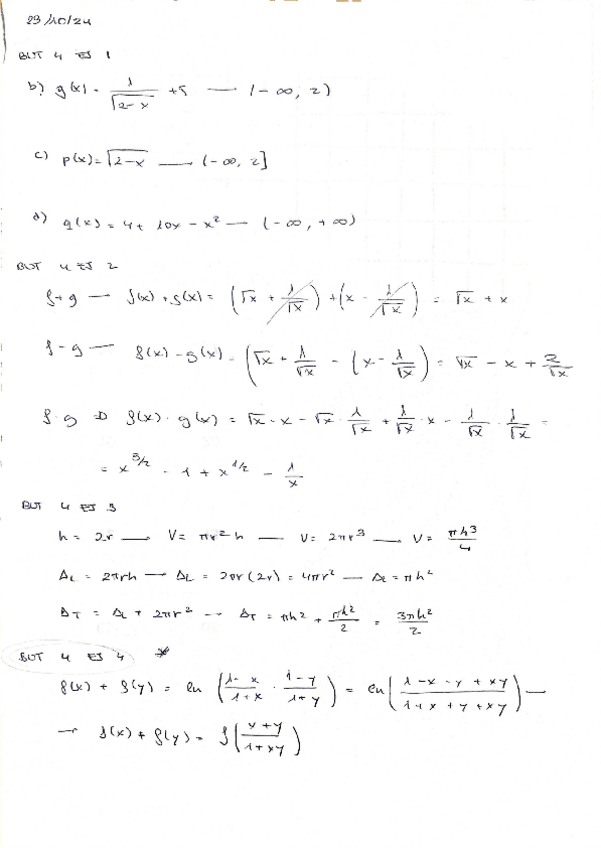 29/10/24
BLT 4 EJ 1
b) g(x) = 1/√(2-x) + 5 — (-∞, 2)
c) p(x) = √(2-x) — (-∞, 2]
d) q(x) = 4 + 10x - x² — (-∞, +∞)
BLT 4 EJ 2
f+g — f(x) + g(x) = (√x + 1/√x) + (x - 1/√x) = √x + x
f-g — f(x) - g(x) = (√x + 1/√x - (x - 1/√x) = √x - x + 2/√x
f·g ⇒ f(x)·g(x) = √x·x - √x·1/√x + 1/√x·x - 1/√x·1/√x =
= x^(3/2) - 1 + x^(1/2) - 1/x
BLT 4 EJ 3
h = 2r → V = πr²h — V = 2πr³ → V = πh³/4
A_L = 2πrh → A_L = 2πr(2r) = 4πr² — A_L = πh²
A_T = A_L + 2πr² → A_T = πh² + πh²/2 = 3πh²/2
BLT 4 EJ 4 *
f(x) + f(y) = ln(1-x/1+x · 1-y/1+y) = ln(1-x-y+xy/1+x+y+xy) —
→ f(x) + f(y) = f(x+y/1+xy)